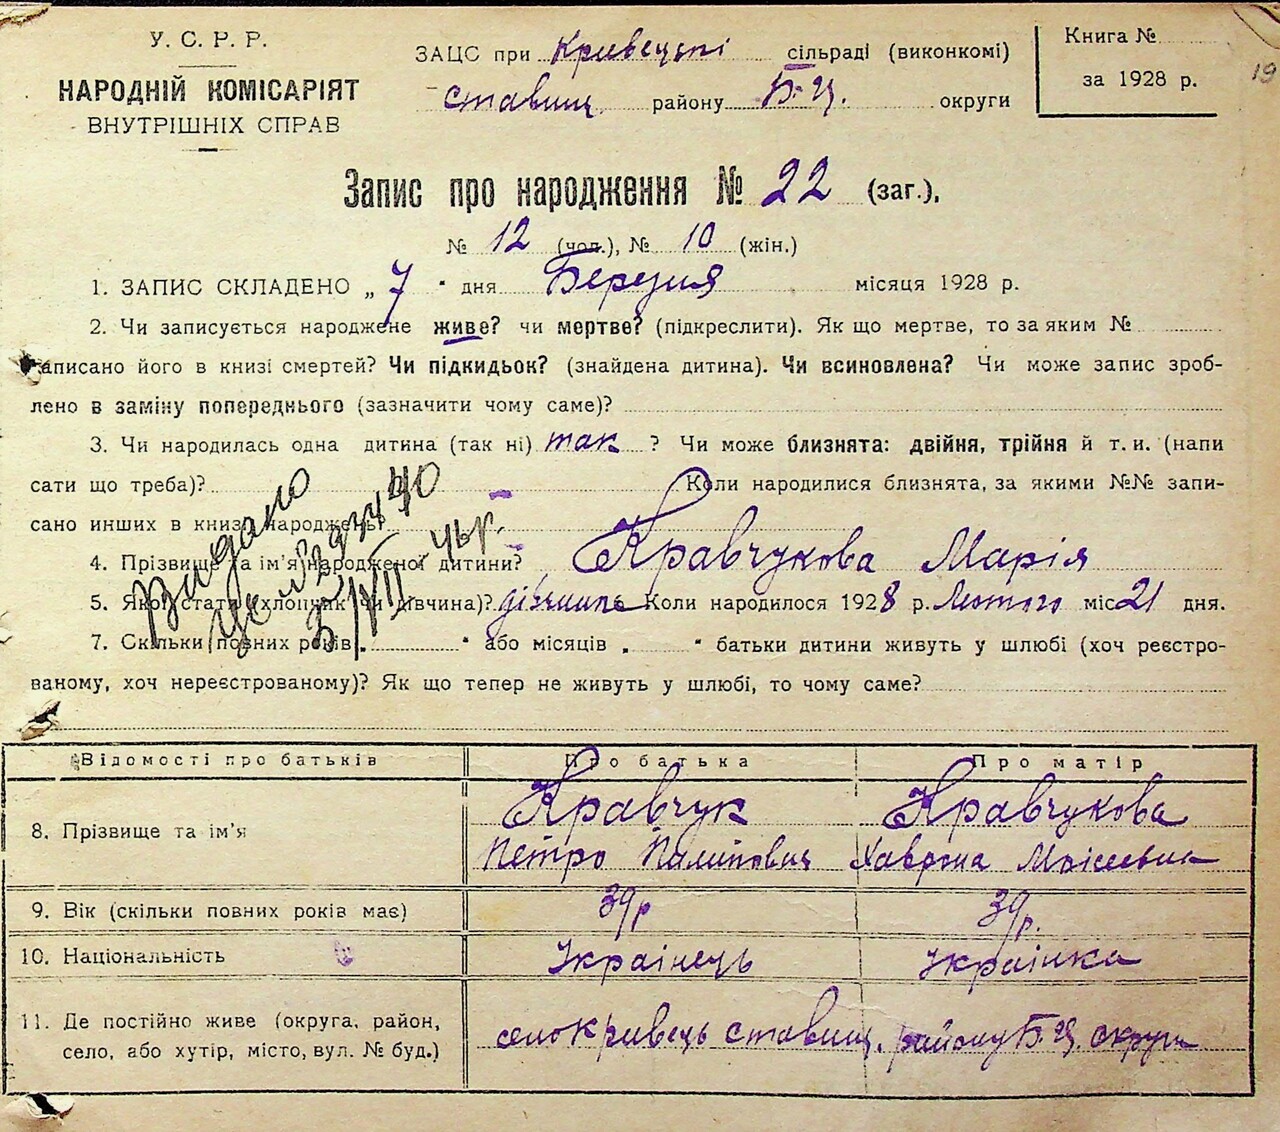 У. С. Р. Р.
НАРОДНІЙ КОМІСАРІЯТ
ВНУТРІШНІХ СПРАВ
ЗАЦС при Кривецькі сільраді (виконкомі)
Ставищ. району Б-Ц. округи
Книга №
за 1928 р.
19
Запис про народження № 22 (заг.),
№ 12 (чол.), № 10 (жін.)
1. ЗАПИС СКЛАДЕНО „ 7 " дня Березня місяця 1928 р.
2. Чи записується народжене живе? чи мертве? (підкреслити). Як що мертве, то за яким №
записано його в книзі смертей? Чи підкидьок? (знайдена дитина). Чи всиновлена? Чи може запис зроб-
лено в заміну попереднього (зазначити чому саме)?
3. Чи народилась одна дитина (так ні) так ? Чи може близнята: двійня, трійня й т. и. (напи
сати що треба)? Коли народилися близнята, за якими №№ запи-
сано инших в книзі народжень?
Видано
4. Прізвище та ім'я народженої дитини? Кравчукова Марія
5. Якої стати (хлопчик чи дівчина)? дівчина Коли народилося 1928 р. Лютого міс 21 дня.
7. Скільки повних років „ " або місяців „ " батьки дитини живуть у шлюбі (хоч реєстро-
ваному, хоч нереєстрованому)? Як що тепер не живуть у шлюбі, то чому саме?
Відомості про батьків Про батька Про матір
8. Прізвище та ім'я Кравчук Кравчукова
Петро Пилипович Хаврона Моісеевна
9. Вік (скільки повних років має) 39 р 39 р.
10. Національність Українець Українка
11. Де постійно живе (округа, район,
село, або хутір, місто, вул. № буд.)
село Кривець Ставищ. району Б-Ц. округи